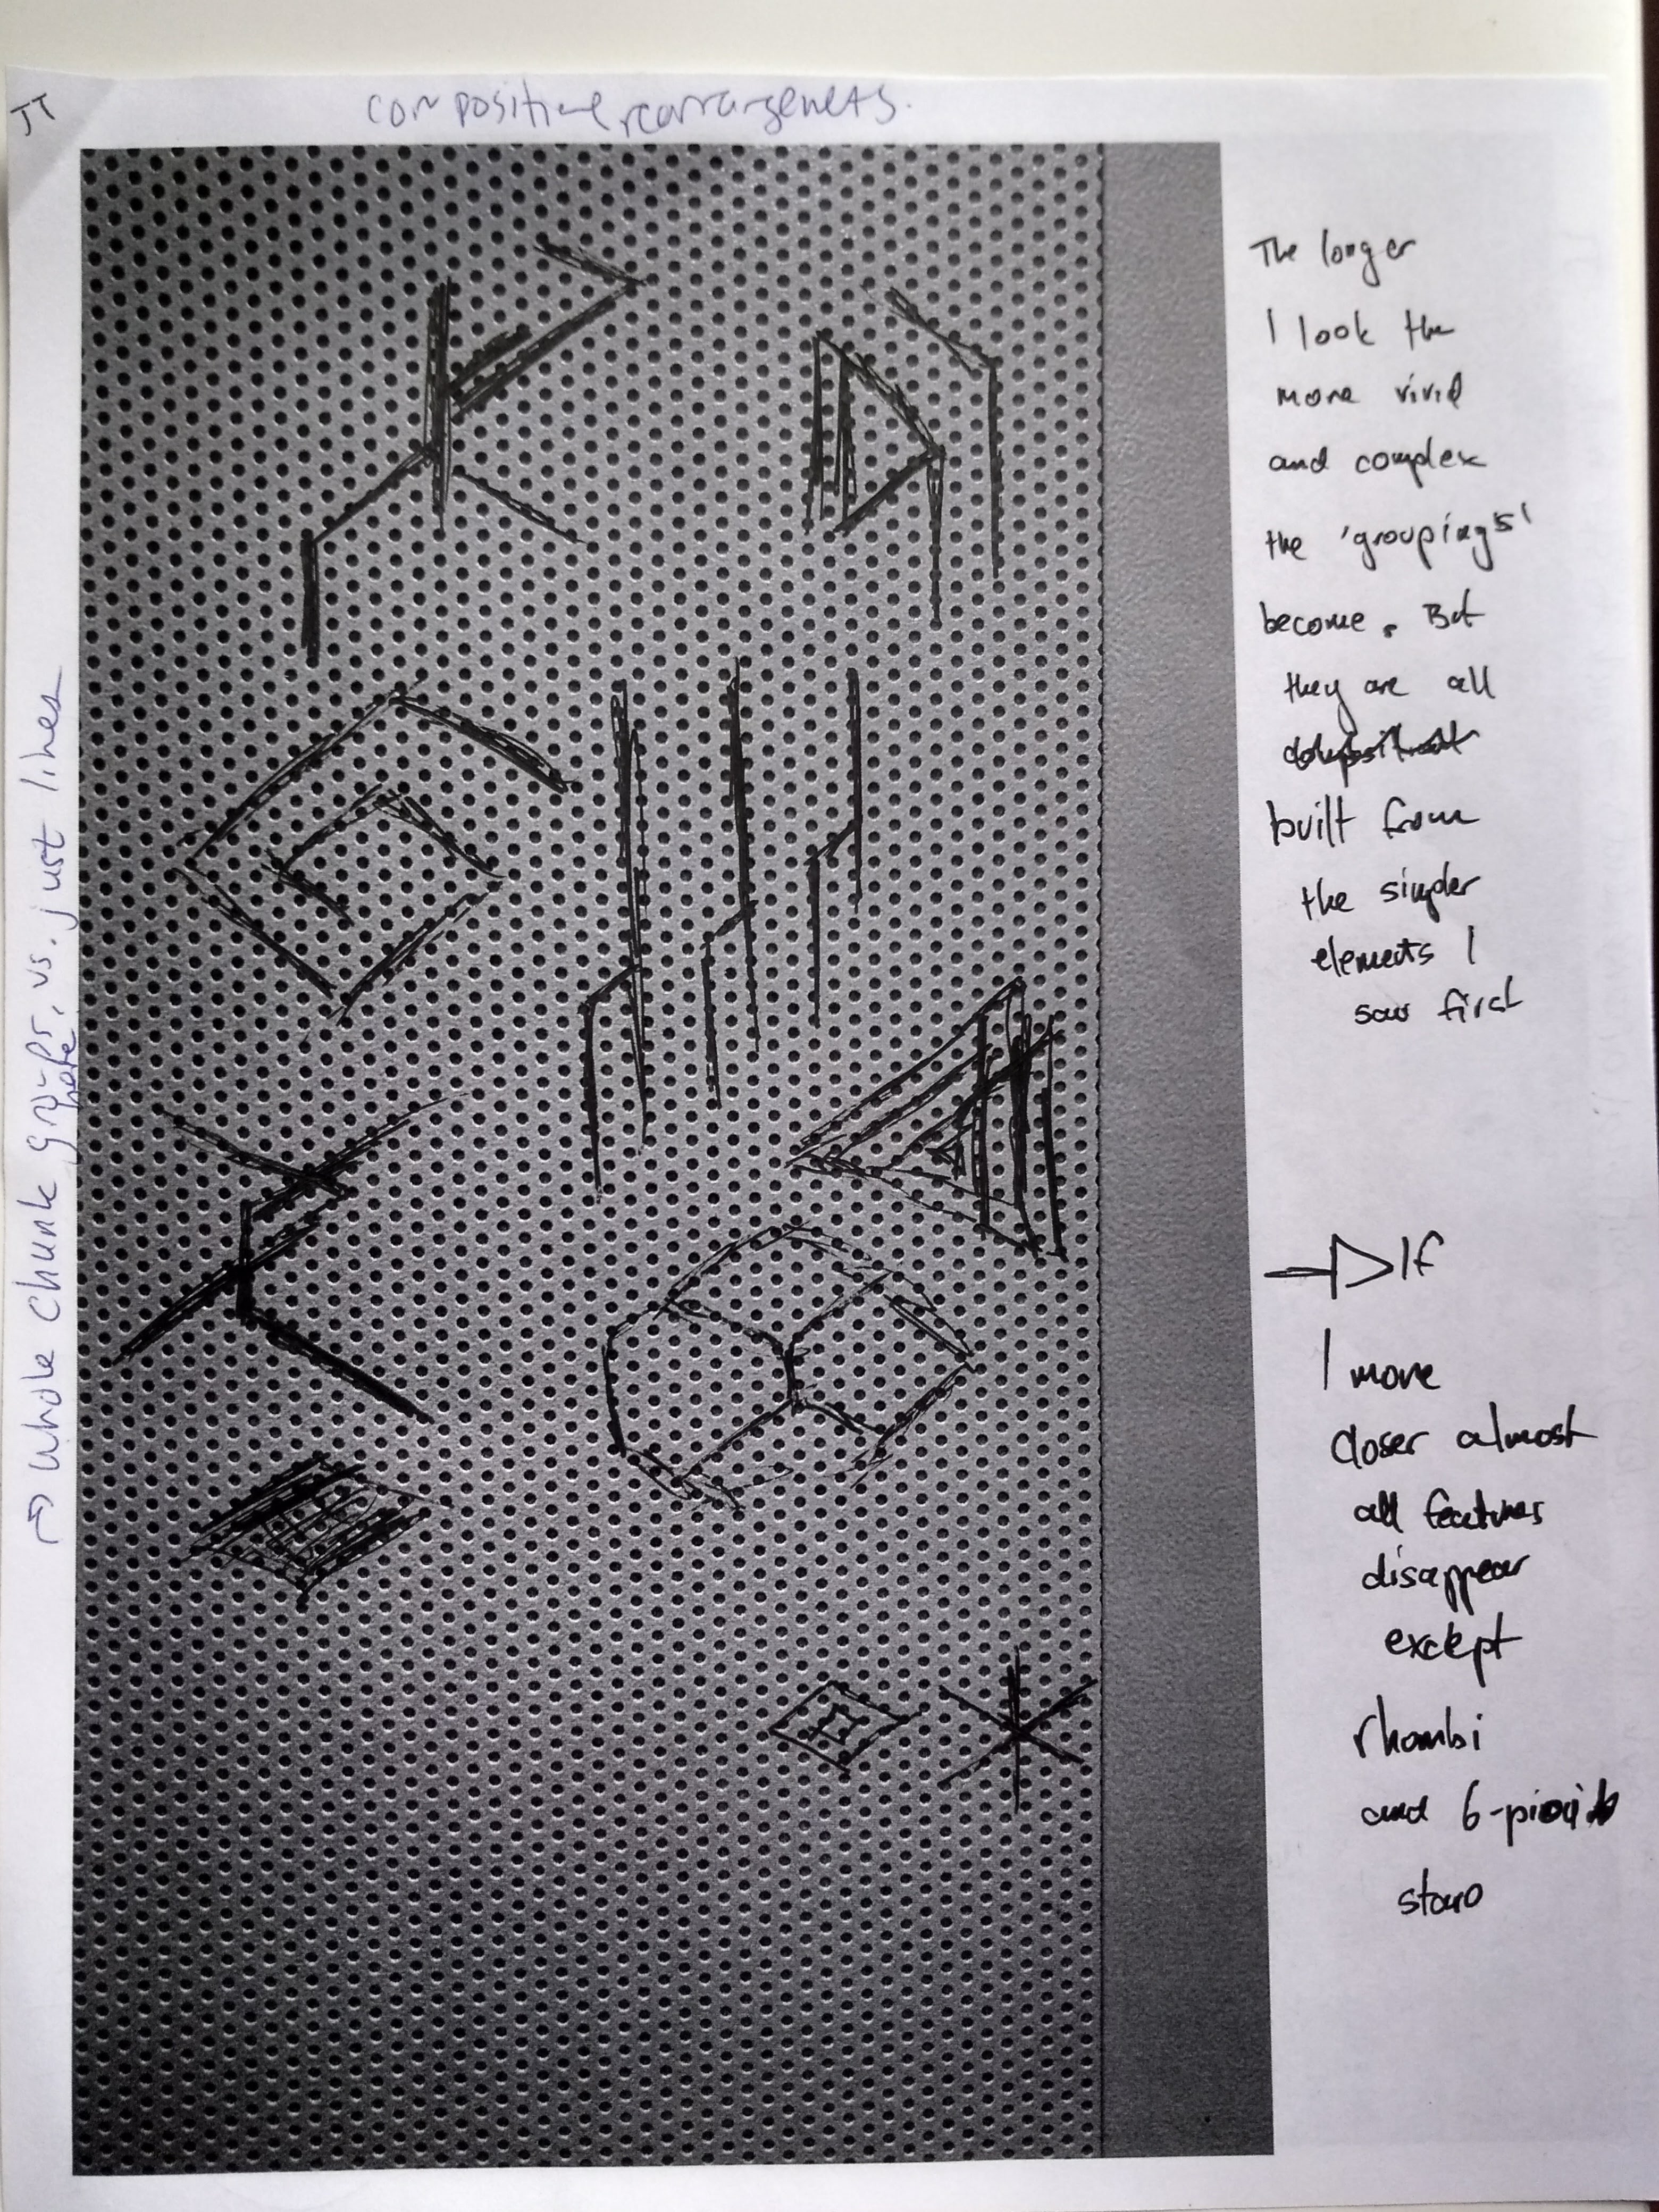 JT
compositine rearrangemets.
The longer
I look the
more vivid
and complex
the 'groupings'
become. But
they are all
built from
the simpler
elements I
saw first
If
I move
closer almost
all features
disappear
except
rhombi
and 6-point
stars
→ whole chunk grps, vs. just lines
here